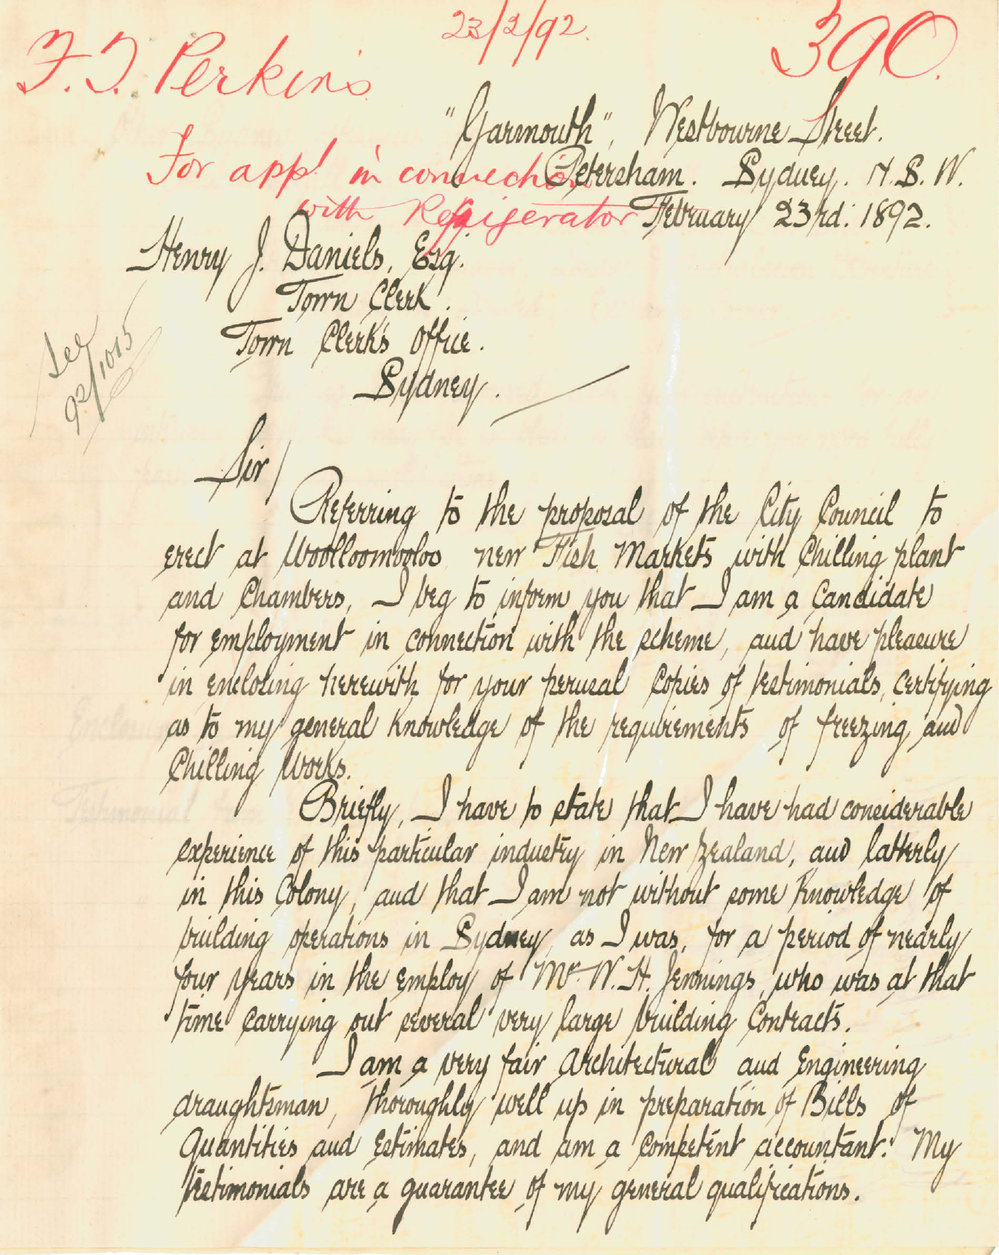 23/2/92.
390.
F. T. Perkins
"Yarmouth", Westbourne Street.
For appt in connection
Petersham. Sydney. N. S. W.
with Refrigerator
February 23rd: 1892.
Henry J. Daniels, Esq.
Town Clerk.
Town Clerk's Office.
Sydney.
See
92/1015
Sir/
Referring to the proposal of the City Council to
erect at Woolloomooloo new Fish Markets with Chilling plant
and Chambers, I beg to inform you that I am a Candidate
for employment in connection with the scheme, and have pleasure
in enclosing herewith for your perusal Copies of testimonials, certifying
as to my general knowledge of the requirements of freezing and
Chilling Works.
Briefly, I have to state that I have had considerable
experience of this particular industry in New Zealand, and latterly
in this Colony, and that I am not without some knowledge of
building operations in Sydney, as I was, for a period of nearly
four years in the employ of Mr. W. H. Jennings, who was at that
time carrying out several very large building Contracts.
I am a very fair Architectural and Engineering
draughtsman, thoroughly well up in preparation of Bills of
Quantities and Estimates, and am a competent accountant. My
testimonials are a guarantee of my general qualifications.